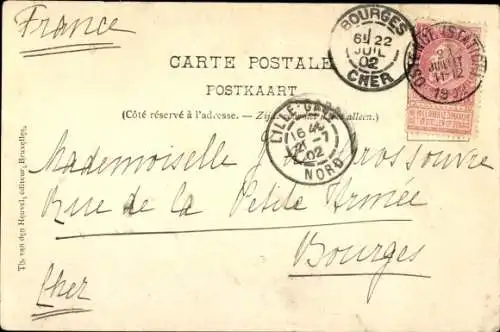 France
BOURGES
6E 22
JUIL
02
CHER
OSTENDE (STATION)
21
JUILLET
11-12
19
CARTE POSTALE
POSTKAART
(Côté réservé à l'adresse. — Zijde alleen.)
LILLE-GARE
16
21 -7
02
NORD
Mademoiselle
Rue de la Petite Armée
Bourges
Cher
Th. van den Heuvel, éditeur, Bruxelles.